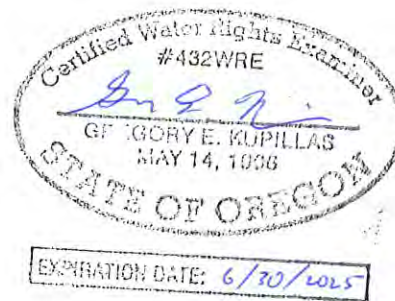 Certified Water Rights Examiner
#432WRE
GREGORY E. KUPILLAS
MAY 14, 1996
STATE OF OREGON
EXPIRATION DATE: 6/30/2025